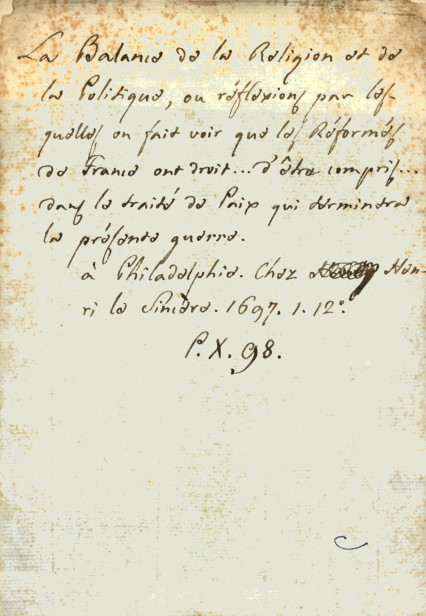 La Balance de la Religion et de
la Politique, ou réflexions par les-
quelles on fait voir que les Réformés
de France ont droit... d'être compris...
dans le traité de Paix qui terminera
la présente guerre.
à Philadelphie. Chez Hen-
ri le Sincère. 1697. 1. 12°.
P. X. 98.